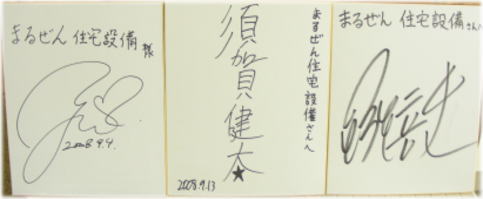 まるぜん 住宅設備様
2008 9.4.
須賀健太★
まるぜん住宅設備さんへ
2008.9.13
まるぜん 住宅設備さんへ